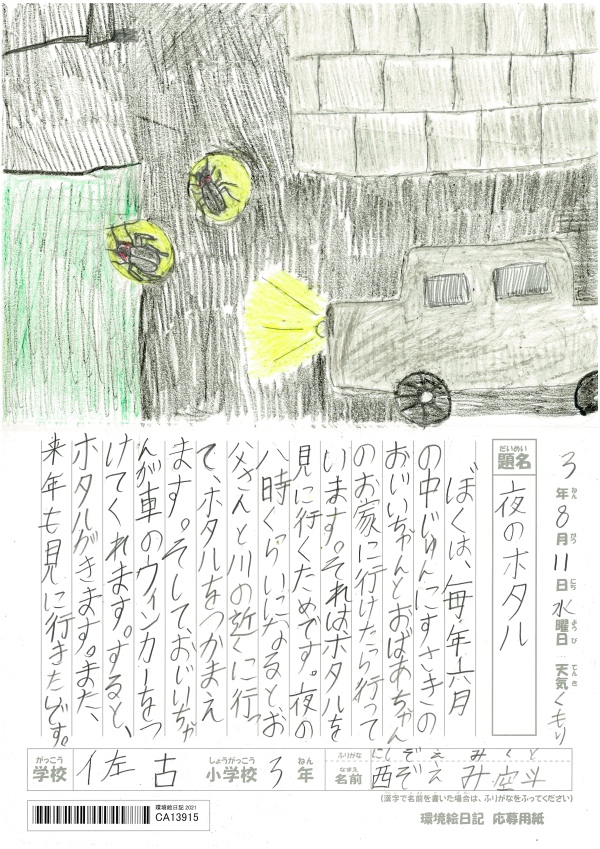 3年8月11日水曜日 天気くもり
ねん がつ にち ようび てんき
だいめい
題名
夜のホタル
ぼくは、毎年六月
の中じゅんにすさきの
おじいちゃんとおばあちゃん
のお家に行けたら行って
います。それはホタルを
見に行くためです。夜の
八時くらいになるとお
父さんと川の近くに行っ
て、ホタルをつかまえ
ます。そして、おじいちゃ
んが車のウィンカーをつ
けてくれます。すると、
ホタルがきます。また、
来年も見に行きたいです。
がっこう しょうがっこう ねん
学校 佐古 小学校 3年
ふりがな にしぞえ みくと
なまえ
名前 西ぞえ み空斗
(漢字で名前を書いた場合は、ふりがなをふってください)
環境絵日記 2021
CA13915
環境絵日記 応募用紙